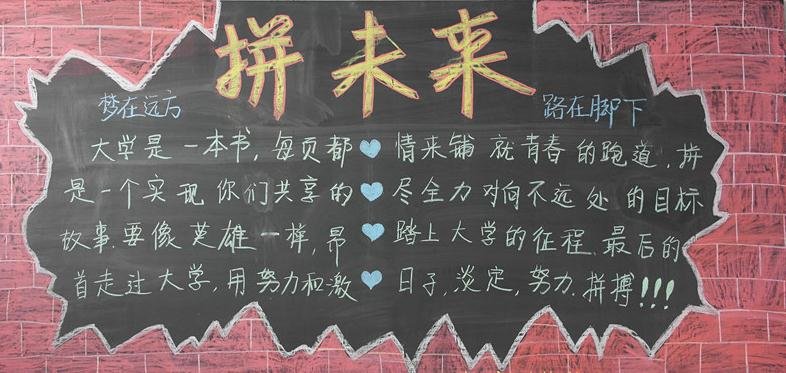 拼未来
梦在远方
大学是一本书，每页都
是一个实现你们共享的
故事.要像英雄一样，昂
首走过大学，用努力和激
路在脚下
情来铺就青春的跑道，拼
尽全力对向不远处的目标
踏上大学的征程.最后的
日子，淡定，努力.拼搏!!!